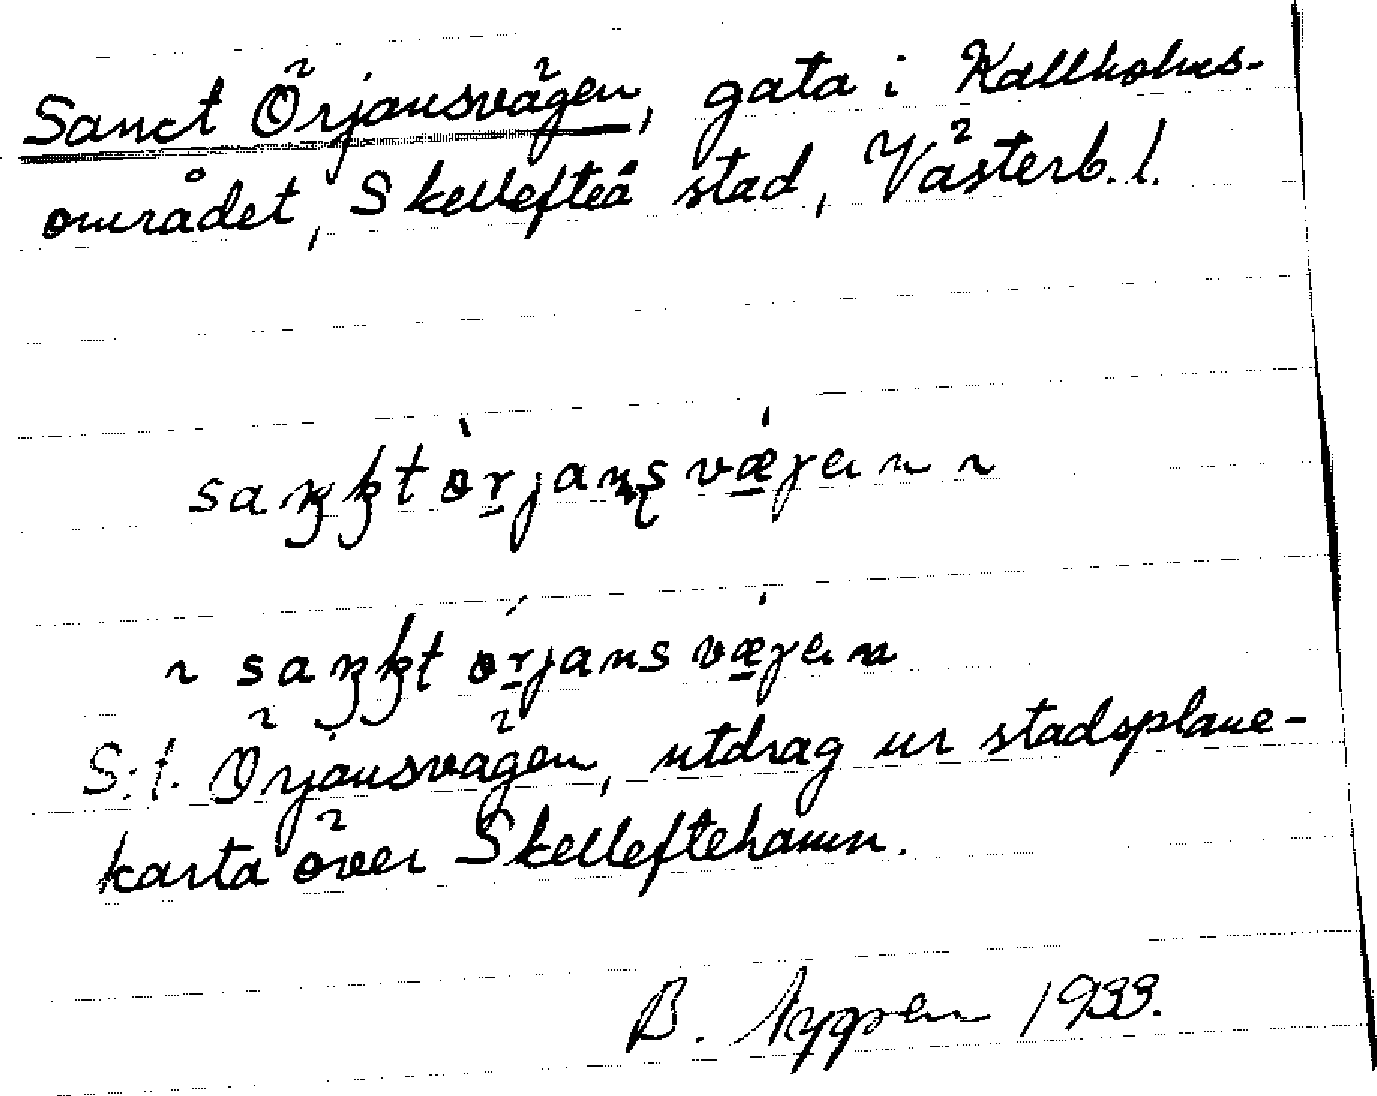 Sanct Örjansvägen, gata i Kallholms-
området, Skellefteå stad, Västerb. l.
saŋkt ö̀rjans vǽgen ~
~ saŋkt ö́rjans vǽgen
S:t. Örjansvägen, utdrag ur stadsplane-
karta över Skelleftehamn.
B. Nygren 1933.